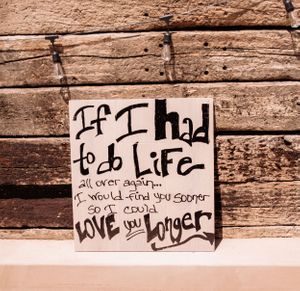 If I had
to do Life
all over again...
I would find you sooner
so I could
LOVE you Longer